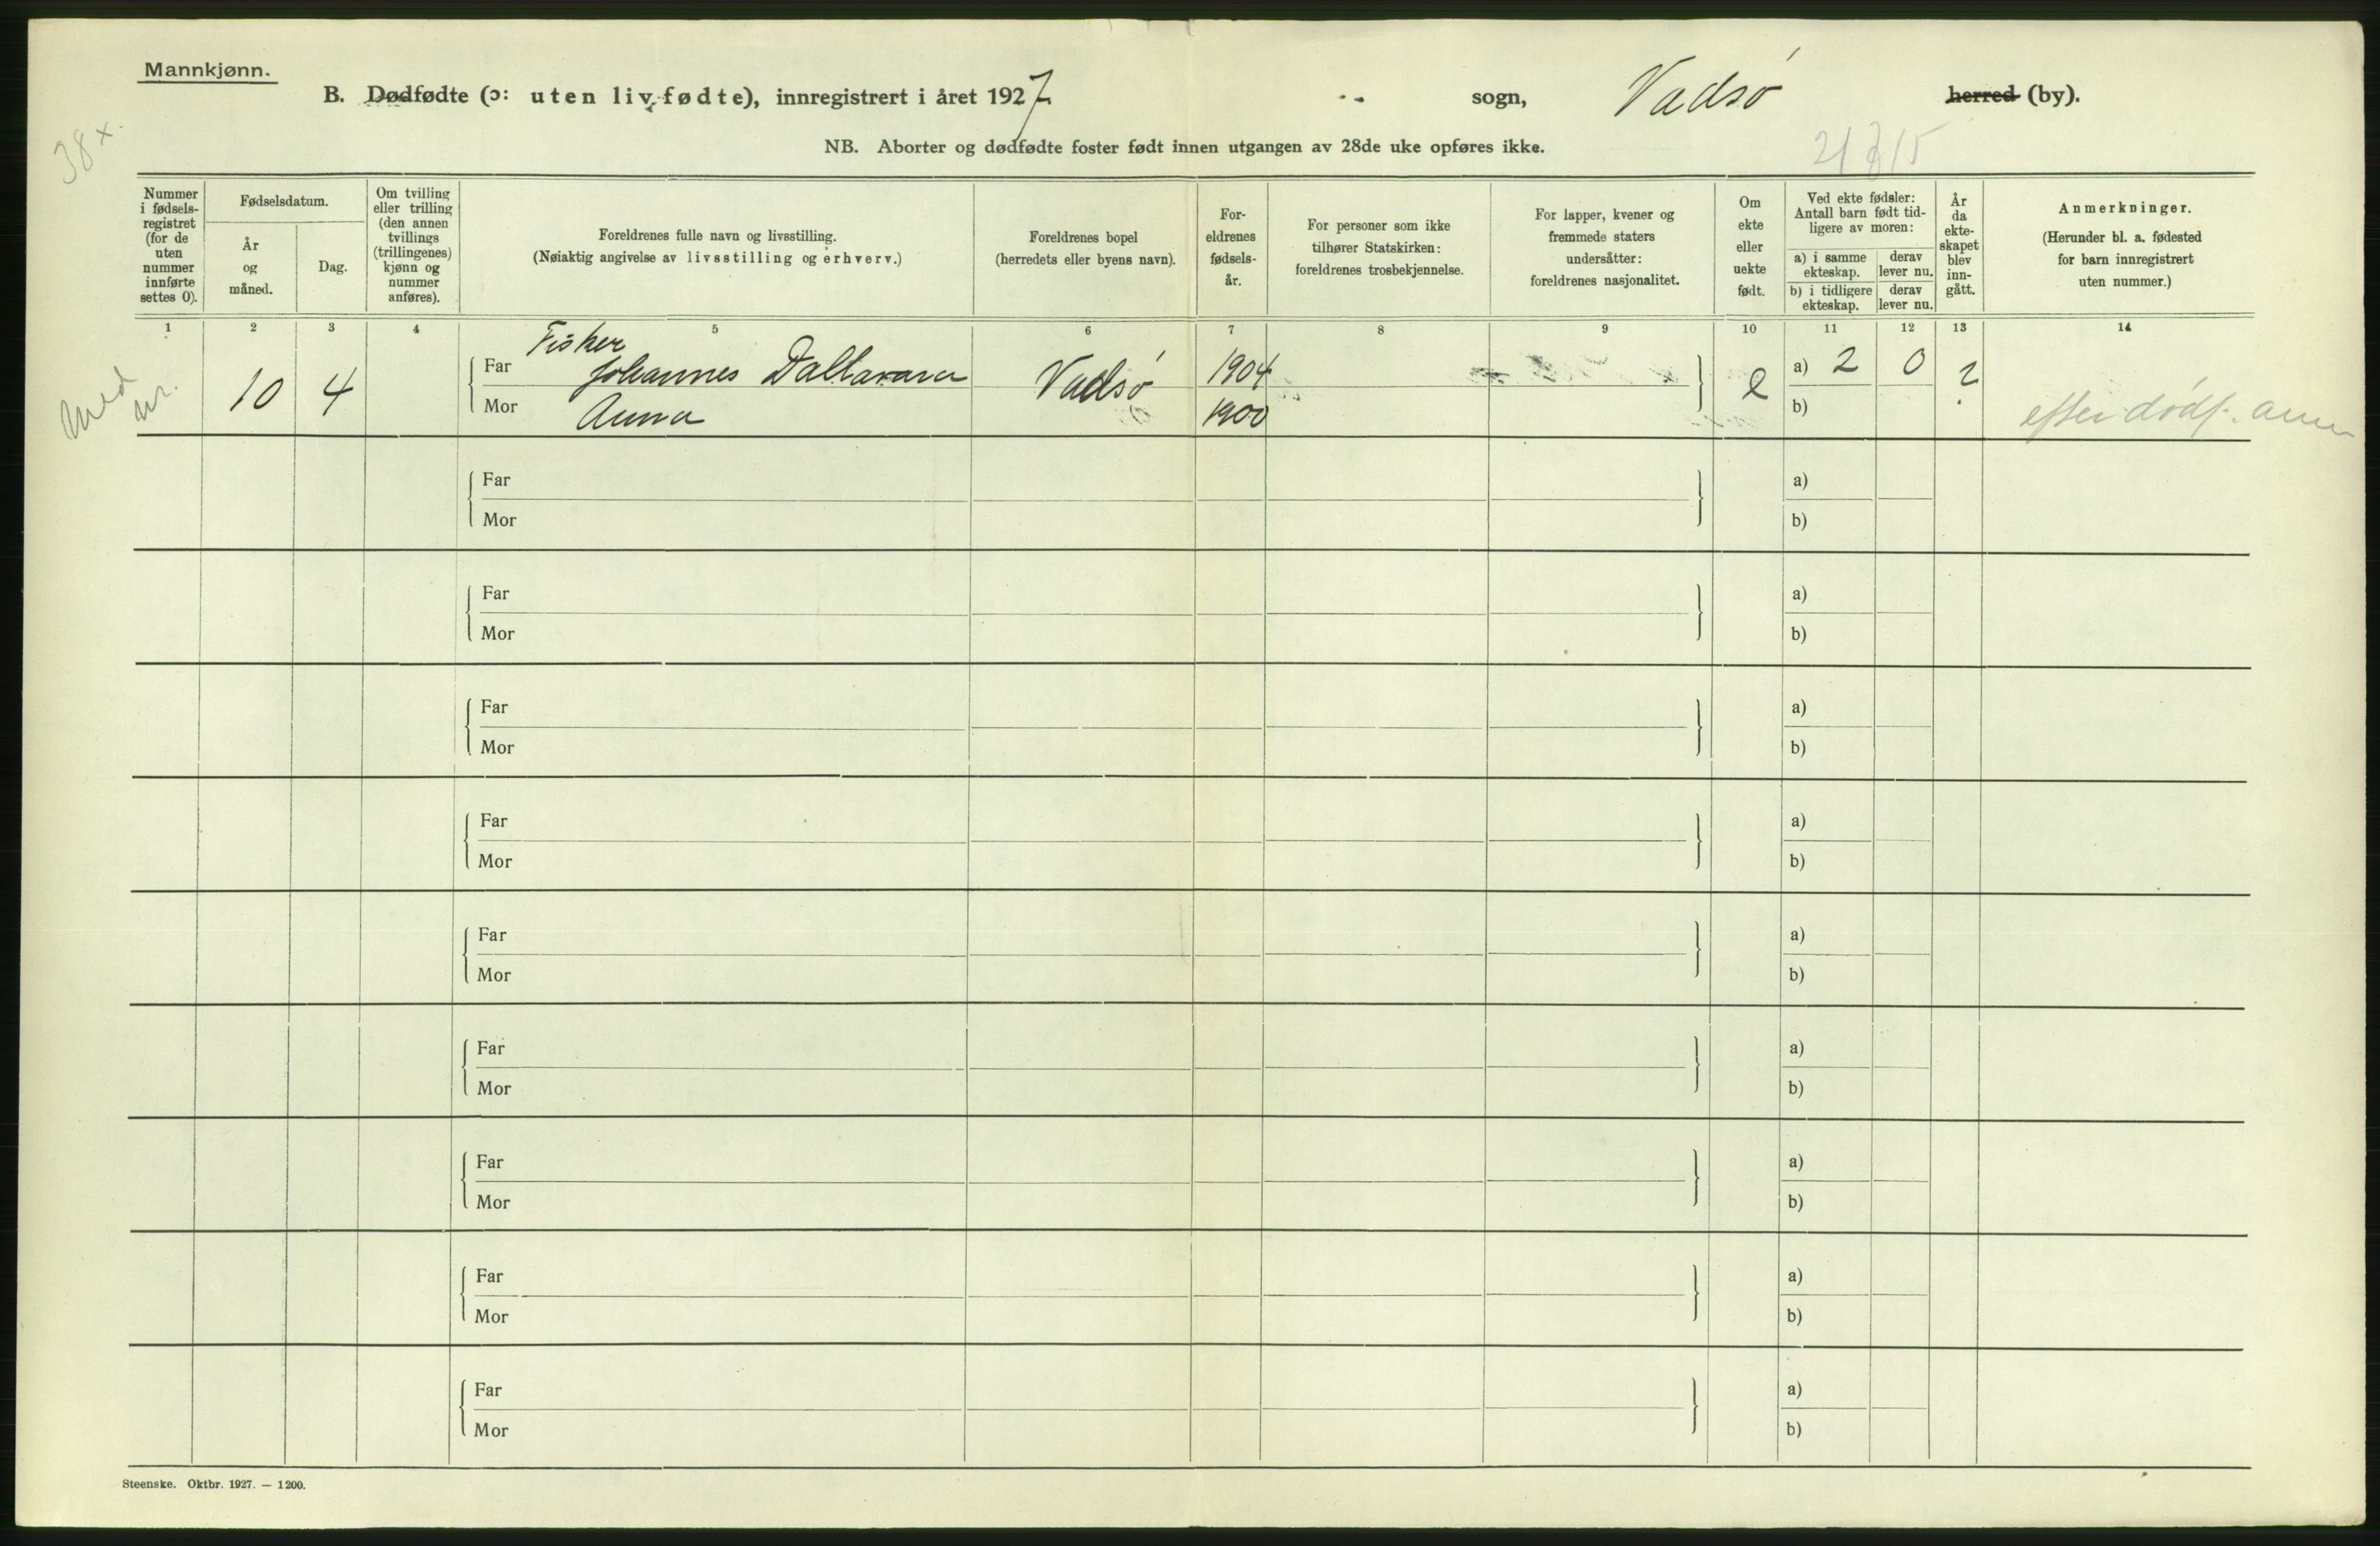 Mannkjønn.
B. Dødfødte (ɔ: uten liv fødte), innregistrert i året 1927 sogn, Vadsø herred (by).
38 x.
NB. Aborter og dødfødte foster født innen utgangen av 28de uke opføres ikke.
Nummer i fødsels- registret (for de uten nummer innførte settes 0).
Fødselsdatum.
År og måned.
Dag.
Om tvilling eller trilling (den annen tvillings (trillingenes) kjønn og nummer anføres).
Foreldrenes fulle navn og livsstilling.
(Nøiaktig angivelse av livsstilling og erhverv.)
Foreldrenes bopel
(herredets eller byens navn).
For- eldrenes fødsels- år.
For personer som ikke
tilhører Statskirken:
foreldrenes trosbekjennelse.
For lapper, kvener og
fremmede staters
undersåtter:
foreldrenes nasjonalitet.
Om ekte eller uekte født.
Ved ekte fødsler:
Antall barn født tid-
ligere av moren:
a) i samme ekteskap.
derav lever nu.
b) i tidligere ekteskap.
derav lever nu.
År da ekte- skapet blev inn- gått.
Anmerkninger.
(Herunder bl. a. fødested
for barn innregistrert
uten nummer.)
1 2 3 4 5 6 7 8 9 10 11 12 13 14
Med nr.
10 4
Fisker
Far Johannes Vadsø 1904 e a) 2 0 ?
Mor Anna 1900 b)
efter dødf. anm
Far a)
Mor b)
Far a)
Mor b)
Far a)
Mor b)
Far a)
Mor b)
Far a)
Mor b)
Far a)
Mor b)
Far a)
Mor b)
Far a)
Mor b)
Far a)
Mor b)
Steenske. Oktbr. 1927. — 1200.